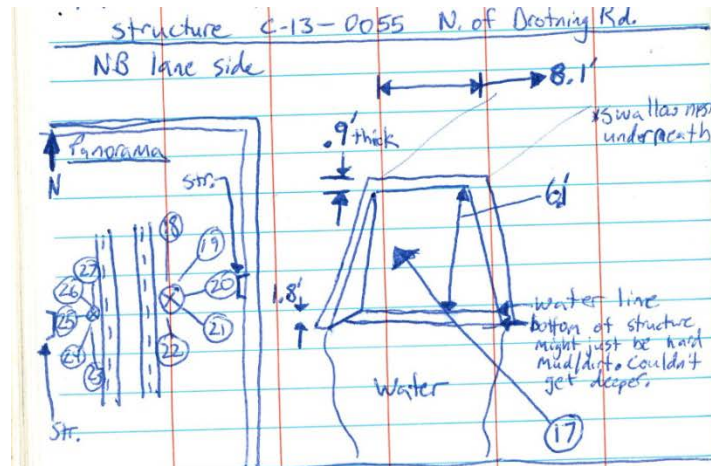 structure C-13-0055 N. of Drotning Rd.
NB lane side
8.1'
.9' thick
*swallow nest
underneath
Panorama
N
str.
6.1'
18
19
20
21
22
27
26
25
24
23
1.8'
water line
bottom of structure
might just be hard
mud/dirt. Couldn't
get deeper.
Water
17
Str.